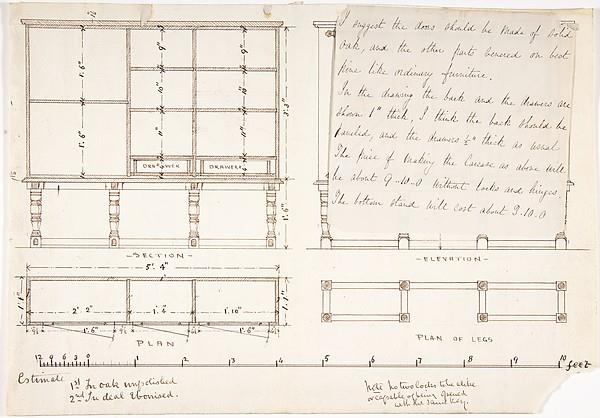 I suggest the doors should be made of solid
oak, and the other parts veneered on best
pine like ordinary furniture.
In the drawing the back and the drawers are
shown 1" thick, I think the back should be
paneled, and the drawers ½" thick as usual
The price of making the Carcase as above will
be about 9-10-0 without locks and hinges.
The bottom stand will cost about 3.10.0
1'.6"
9"
9"
10"
10"
1'.6"
11"
11"
3'.3"
DRAWER
DRAWER
1'.6"
- SECTION -
- ELEVATION -
5'. 4"
1'.1"
2'. 2"
1'. 4"
1'. 10"
1'.1"
1'.6"
1'.6"
PLAN
PLAN OF LEGS
12 9 6 3 0 1 2 3 4 5 6 7 8 9 10 feet
Estimate
1st In oak unpolished
2nd In deal ebonised.
Note no two locks to be alike
or capable of being opened
with the same key.